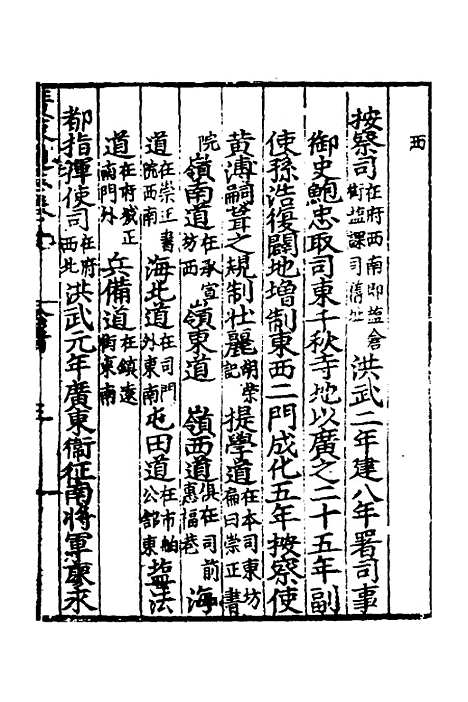 西
按察司在府西南即盐倉街盐課司舊址洪武二年建八年署司事
御史鮑忠取司東千秋寺地以廣之二十五年副
使孫浩復闢地增制東西二門成化五年按察使
黄溥嗣葺之規制壯麗胡榮記提學道在本司東坊扁曰崇正書
院嶺南道在承宣坊西嶺東道嶺西道俱在司前惠福巷海
道在崇正書院西南海北道在司門外東南屯田道在市舶公館東盐法
道在府城正南門外兵備道在鎮遠街東南
都指揮使司在府西北洪武元年廣東衞征南將軍康永